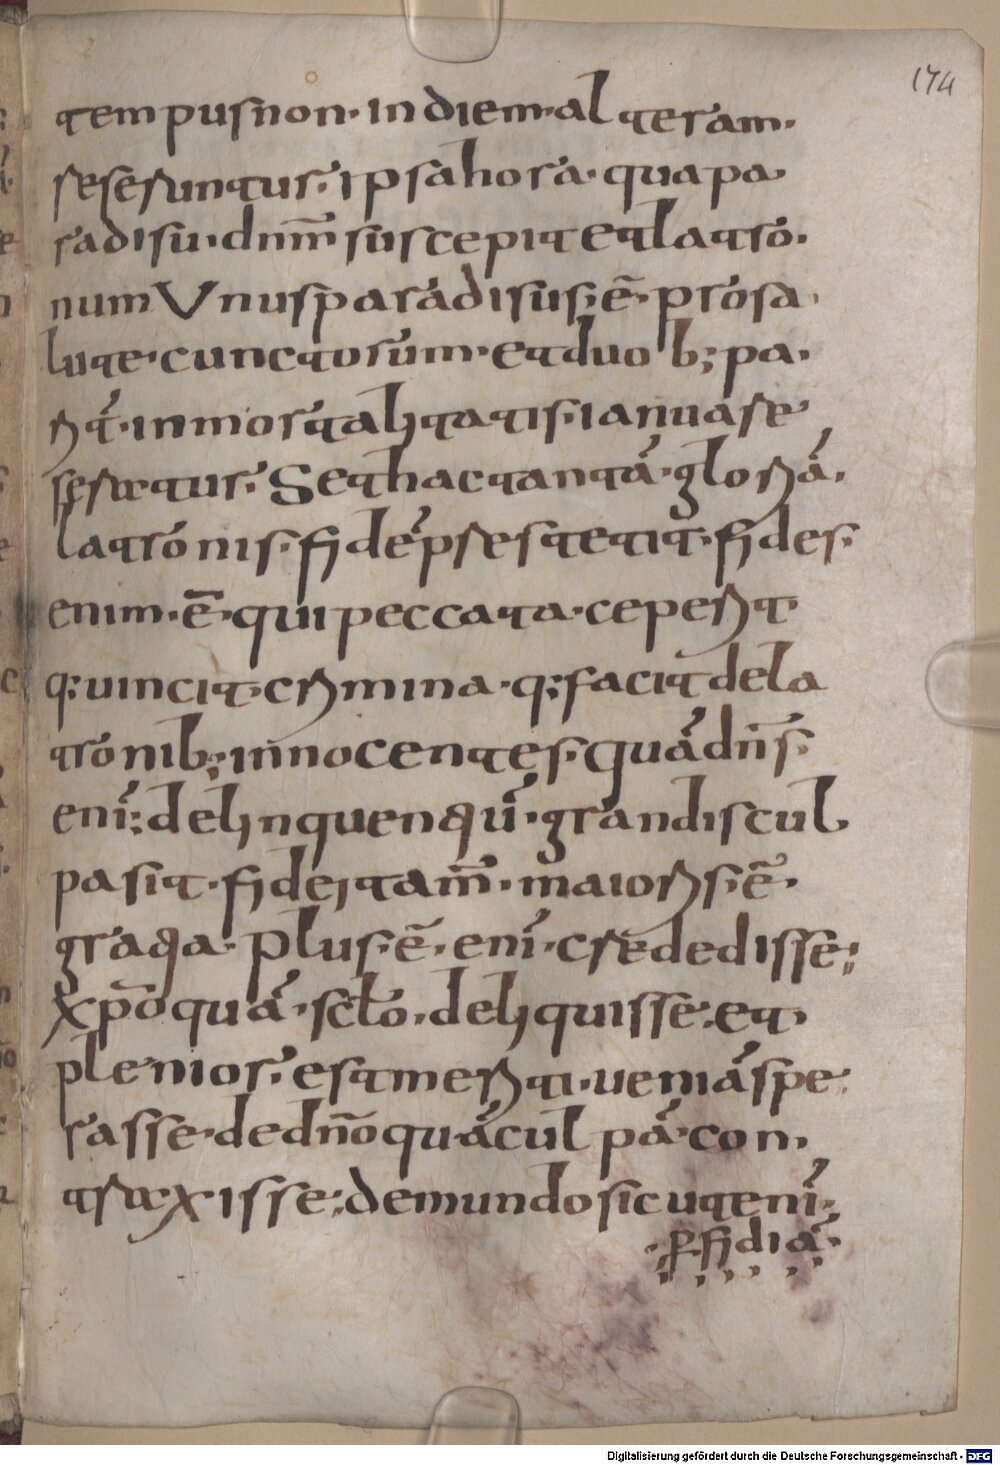 174
tempus non· in diem· al teram·
seseruntur· ipsa hora· qua pa
radisu· dnm̄ suscepit et latro·
num Unus paradisus· ē· pro sa
lute· cunctorum· et duob; pa·
rit̄· inmortalitatis· ianua re
seretur· Set hac tantā· gloriā·
latronis· fidē· prestetit· fides·
enim· ē· qui peccata· ceperit
q; uincit· crimina· q; facit de la
tronib; innocentes· Quā dn̄s·
eni· delinquentiū· grandis cul
pa sit· fidei tam̄· maioris· ē·
gratia· plus· ē· eni· crededisse;
xp̄o quā· sclō· deliquisse· et
plenior· est meriti· ueniā spe
rasse· de dn̄o quā culpā· con
traexisse; de mundo sicut eni·
·p̱fidiā·
Digitalisierung gefördert durch die Deutsche Forschungsgemeinschaft - DFG